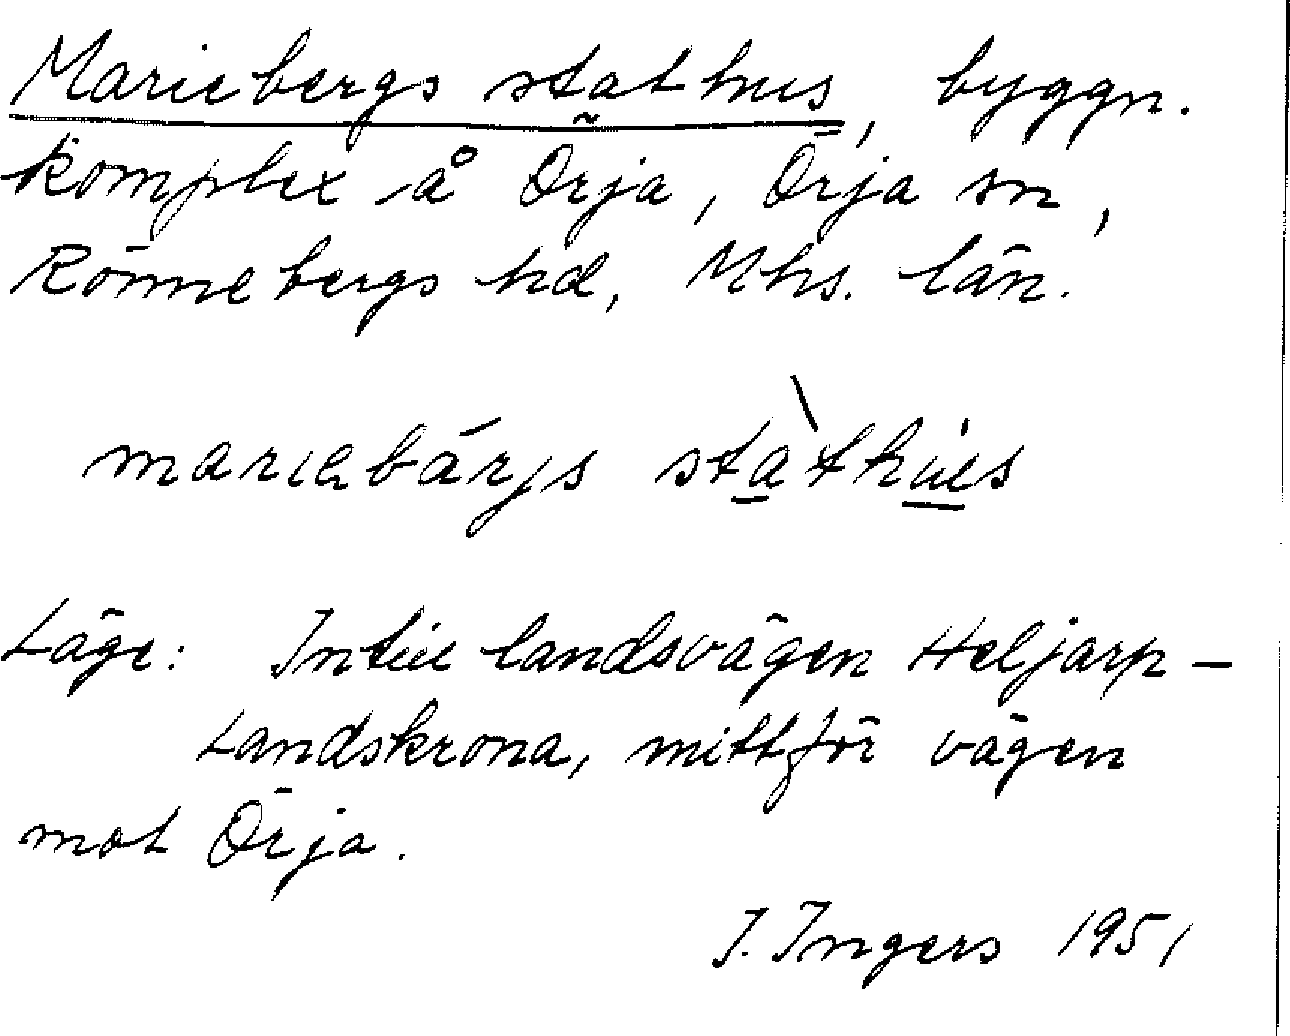 Mariebergs stathus, byggn.
komplex å Örja, Örja sn,
Rönnebergs hd, Mhs. län.
mariebärjs stàthús
Läge: Intill landsvägen Heljarp –
Landskrona, mittför vägen
mot Örja.
I. Ingers 1951